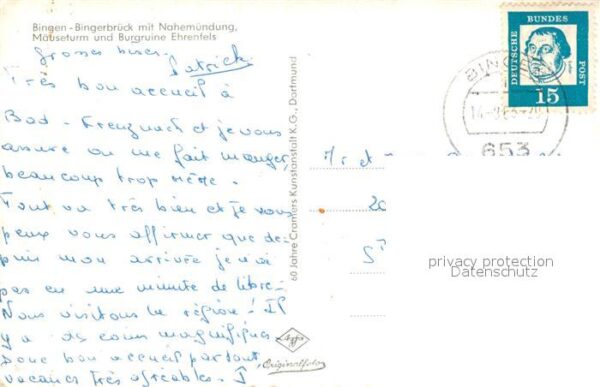 Bingen - Bingerbrück mit Nahemündung,
Mäuseturm und Burgruine Ehrenfels
grosses bises
Patrick
Très bon accueil à
Bad - Kreuznach et je vous
assure on me fait manger,
beaucoup trop même.
Tout va très bien et je vous
peux vous affirmer que de-
puis mon arrivée je n'ai
pas eu une minute de libre.
Nous visitons la région! Il
y a des coins magnifiques
Donc bon accueil partout,
vacances très agréables.
60 Jahre Cramers Kunstanstalt K.G., Dortmund
Agfa
Originalfoto
DEUTSCHE BUNDES POST
15
BINGEN
653
Mr et
20
privacy protection
Datenschutz